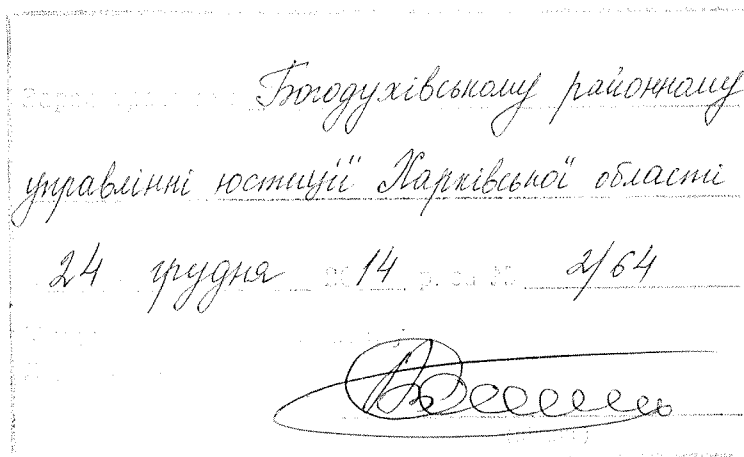 Богодухівському районному
управлінні юстиції Харківської області
24 грудня 2014 р. за № 2/64